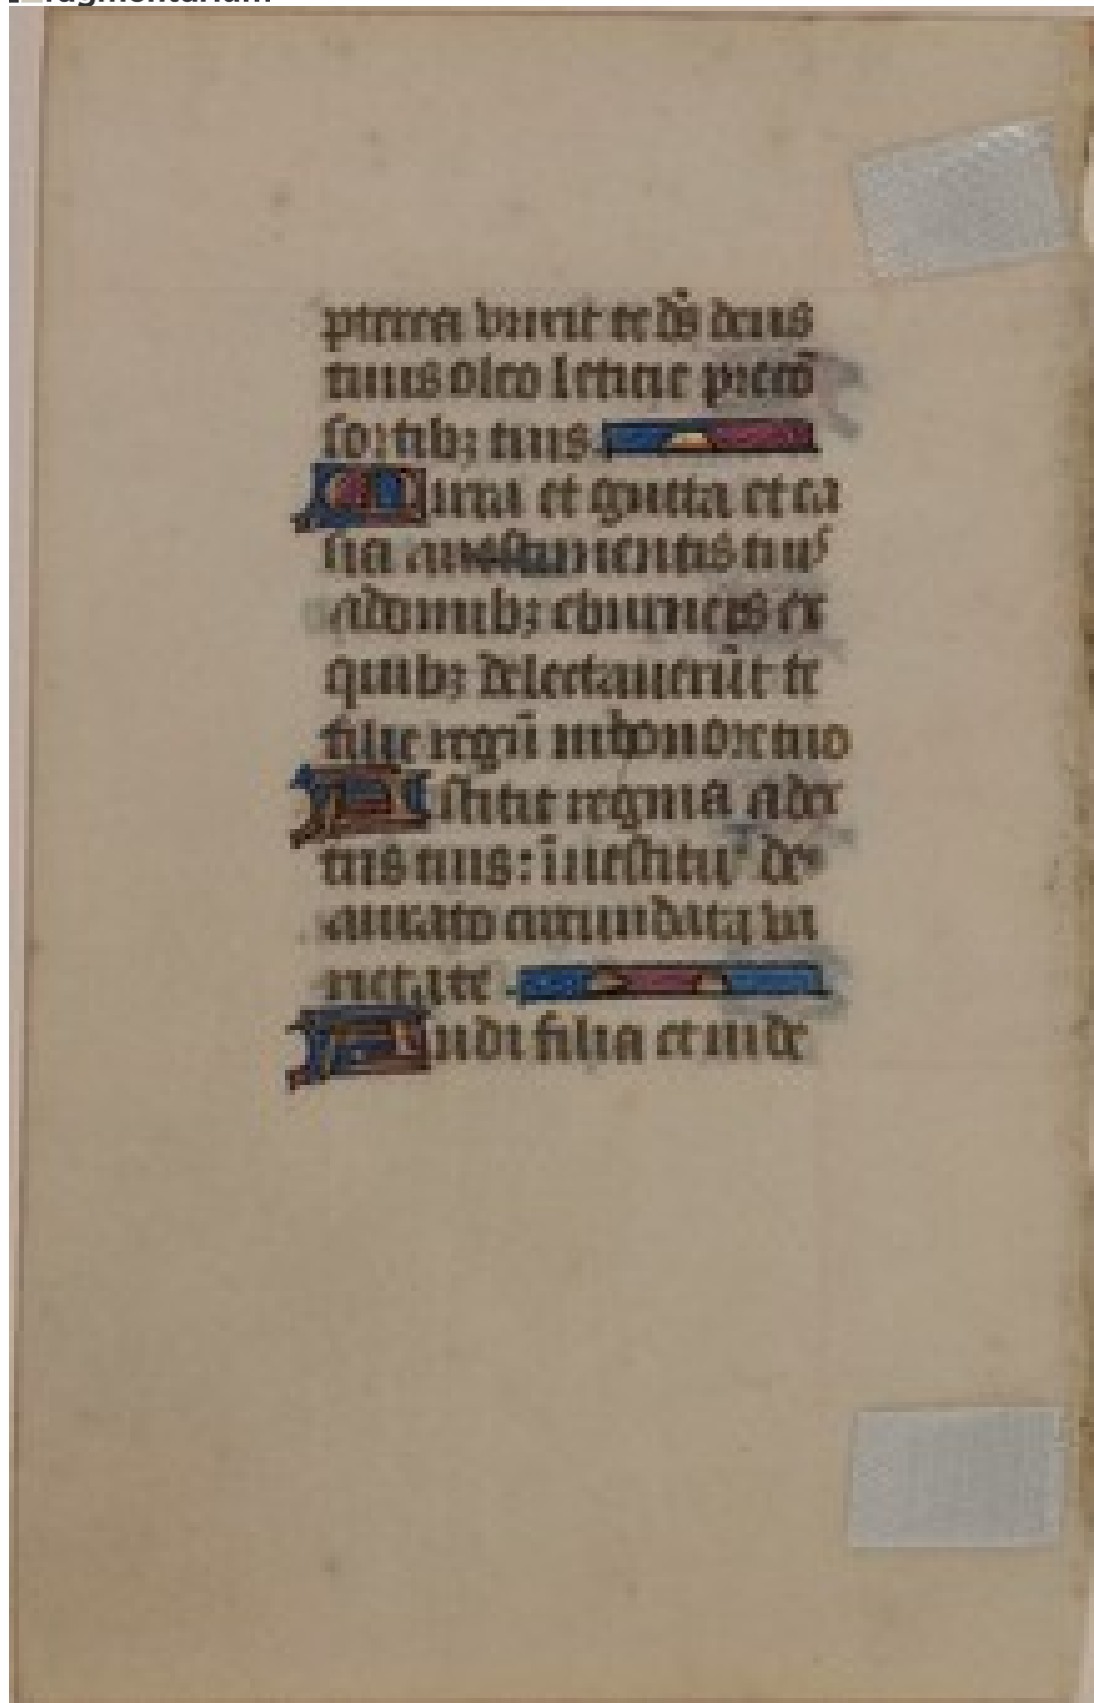 pterea vnxit te dn̄s deus
tuus oleo leticie p̄ cō
sortib; tuis
Mirra et gutta et ca
sia a uestimentis tuis
a domib; eburneis ex
quib; delectauerūt te
filie regū in honore tuo
Astitit regina a dex
tris tuis: ī uestitu de
aurato circundata va
rietate
Audi filia et uide